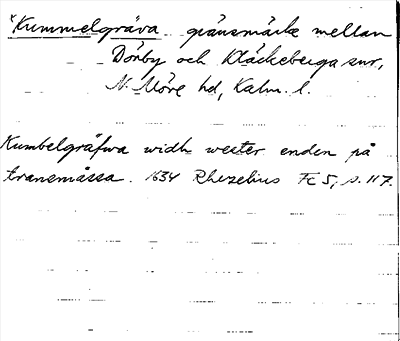 *Kummelgräva gränsmärke mellan
Dörby och Kläckeberga snr,
N. Möre hd, Kalm. l.
Kumbelgräfwa widh wester enden på
tranemåssa. 1634 Rhezelius Fc 5, s. 117.